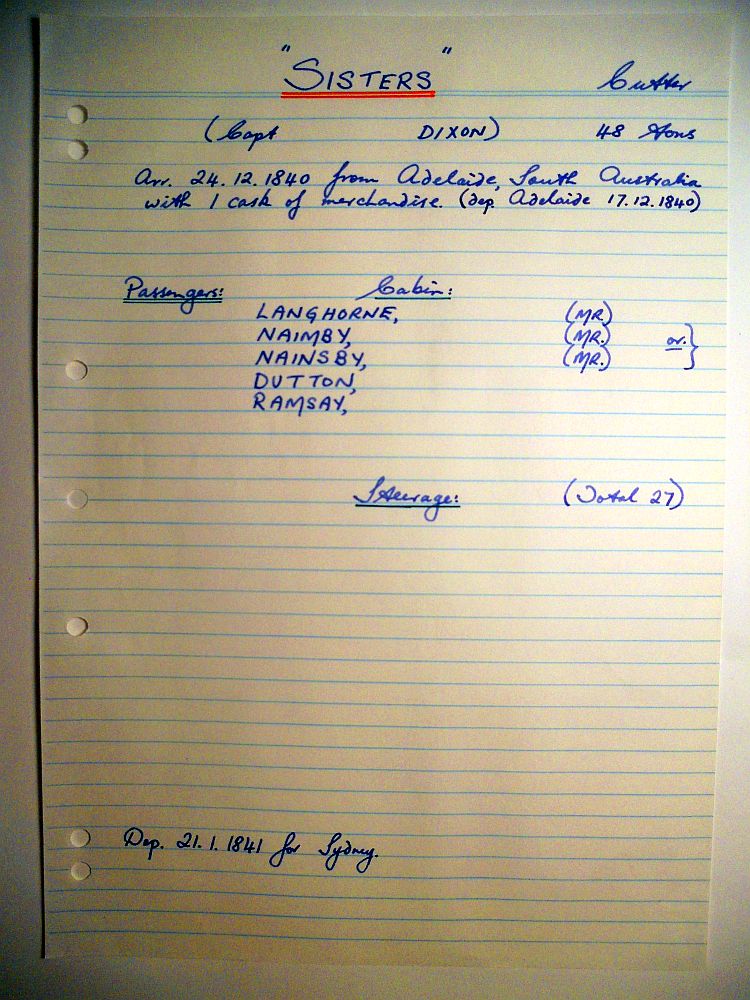 "SISTERS" Cutter
(Capt DIXON) 48 tons
Arr. 24.12.1840 from Adelaide, South Australia
with 1 cask of merchandise. (dep. Adelaide 17.12.1840)
Passengers: Cabin:
LANGHORNE, (MR)
NAIMBY, (MR.) or. }
NAINSBY, (MR.)
DUTTON,
RAMSAY,
Steerage: (Total 27)
Dep. 21.1.1841 for Sydney.